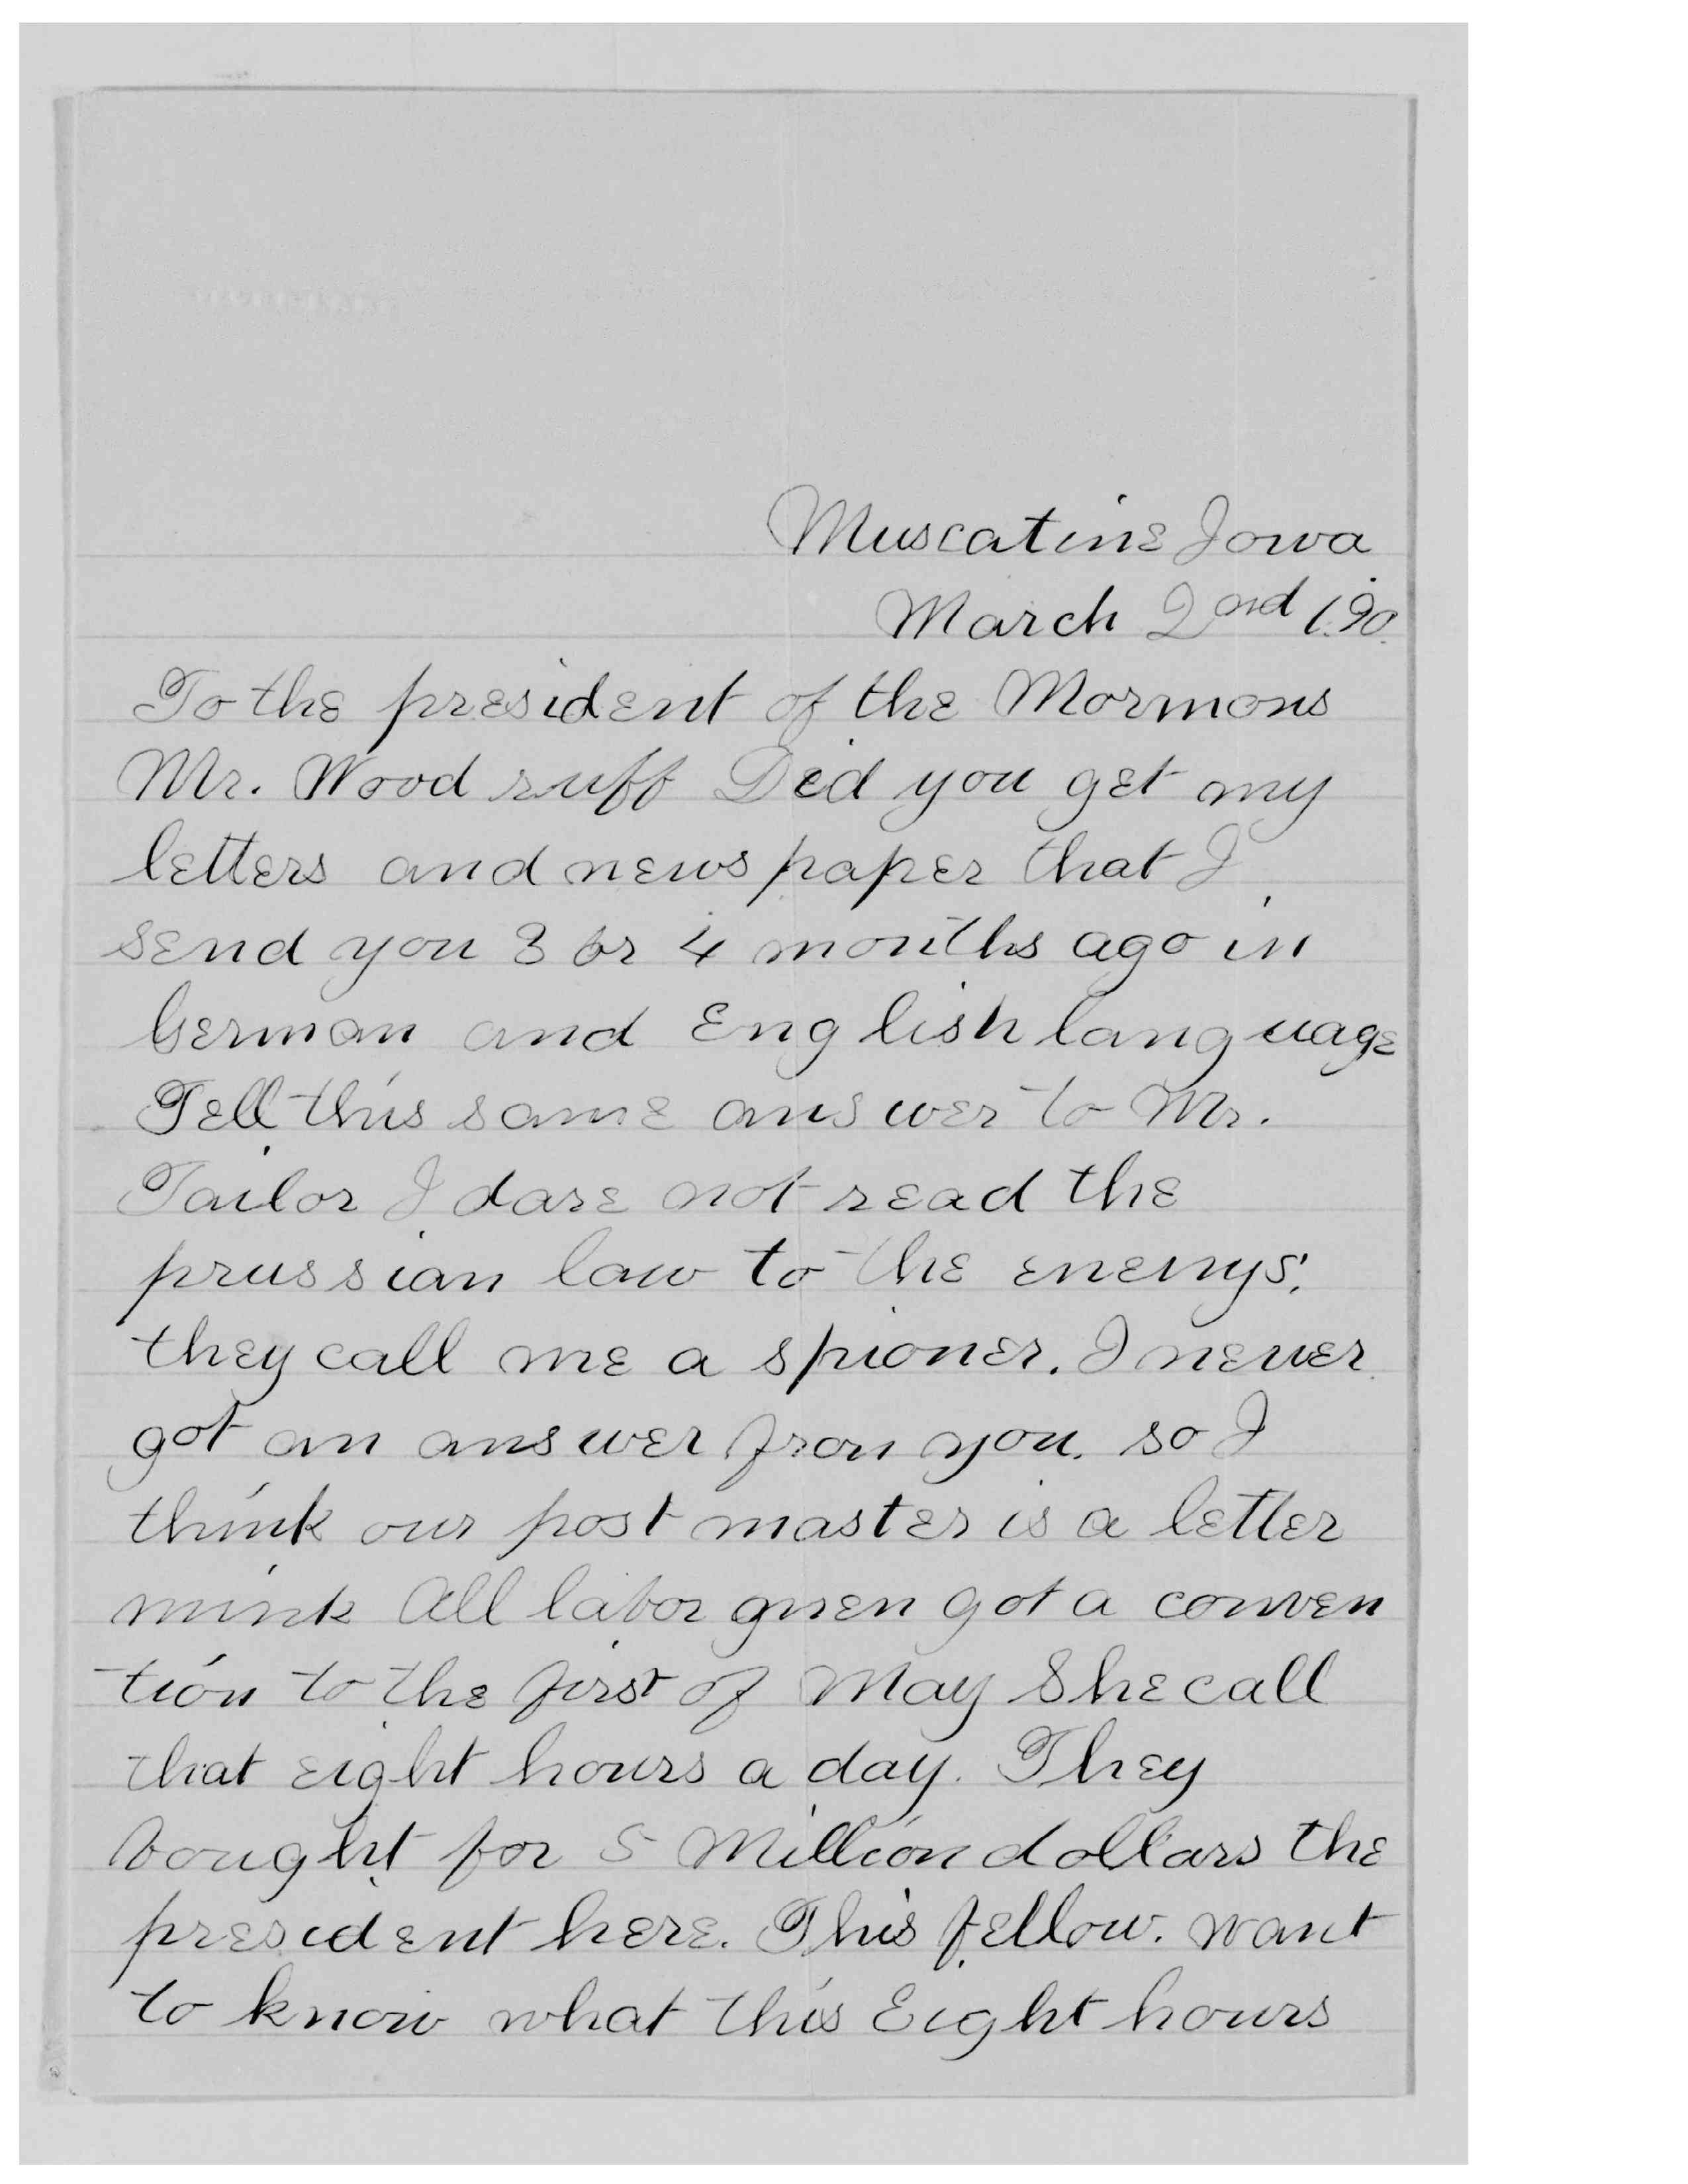 Muscatine Iowa
March 2nd 1.90.
To the president of the Mormons
Mr. Wood ruff Did you get my
letters and news paper that I
send you 3 or 4 months ago in
German and Eng lish lang uage
Tell this same ans wer to Mr.
Tailor I dare not read the
prus sian law to the enemys;
they call me a spioner. I never
got an ans wer fron you. so I
think our post master is a letter
mink All labor gmen got a conven
tion to the first of May She call
that eight hours a day. They
bought for 5 Million dollars the
president here. This fellow. want
to know what this Eight hours